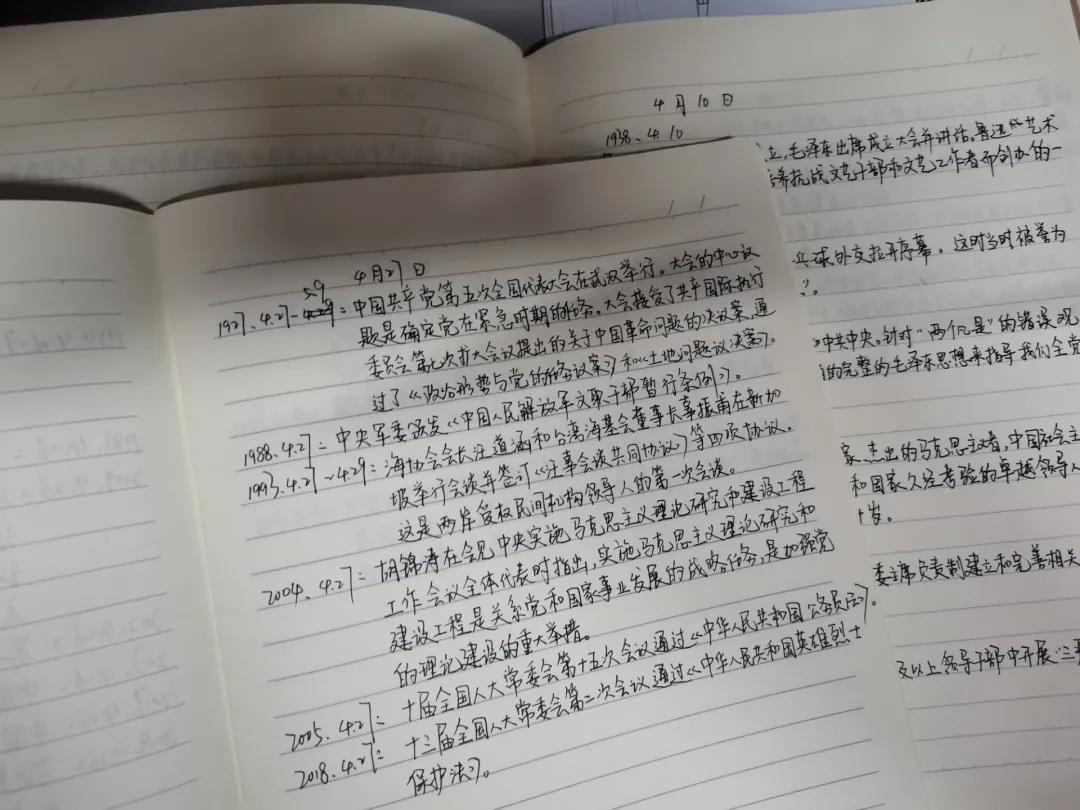 4月10日
1938.4.10
立,毛泽东出席成立大会并讲话。鲁迅艺术
养抗战文艺干部和文艺工作者而创办的一
乒球外交拉开序幕。这时当时被誉为
》。
中共中央。针对"两个凡是"的错误观
的完整的毛泽东思想来指导我们全党
家。杰出的马克思主义者,中国社会主
和国家久经考验的卓越领导人
十岁。
委主席负责制建立和完善相关
及以上领导干部中开展"三
4月27日
5.9
1927.4.27-4.29:中国共产党第五次全国代表大会在武汉举行。大会的中心议
题是确定党在紧急时期的任务。大会接受了共产国际执行
委员会第七次扩大会议提出的关于中国革命问题的决议案,通
过了《政治形势与党的任务议案》和《土地问题议决案》。
1988.4.27:中央军委颁发《中国人民解放军文职干部暂行条例》。
1993.4.27~4.29:海协会会长汪道涵和台湾海基会董事长辜振甫在新加
坡举行会谈并签订《汪辜会谈共同协议》等四项协议.
这是两岸受权民间机构领导人的第一次会谈。
2004.4.27:胡锦涛在会见中央实施马克思主义理论研究和建设工程
工作会议全体代表时指出,实施马克思主义理论研究和
建设工程是关系党和国家事业发展的战略任务,是加强党
的理论建设的重大举措。
2005.4.27:十届全国人大常委会第十五次会议通过《中华人民共和国公务员法》。
2018.4.27:十三届全国人大常委会第二次会议通过《中华人民共和国英雄烈士
保护法》。